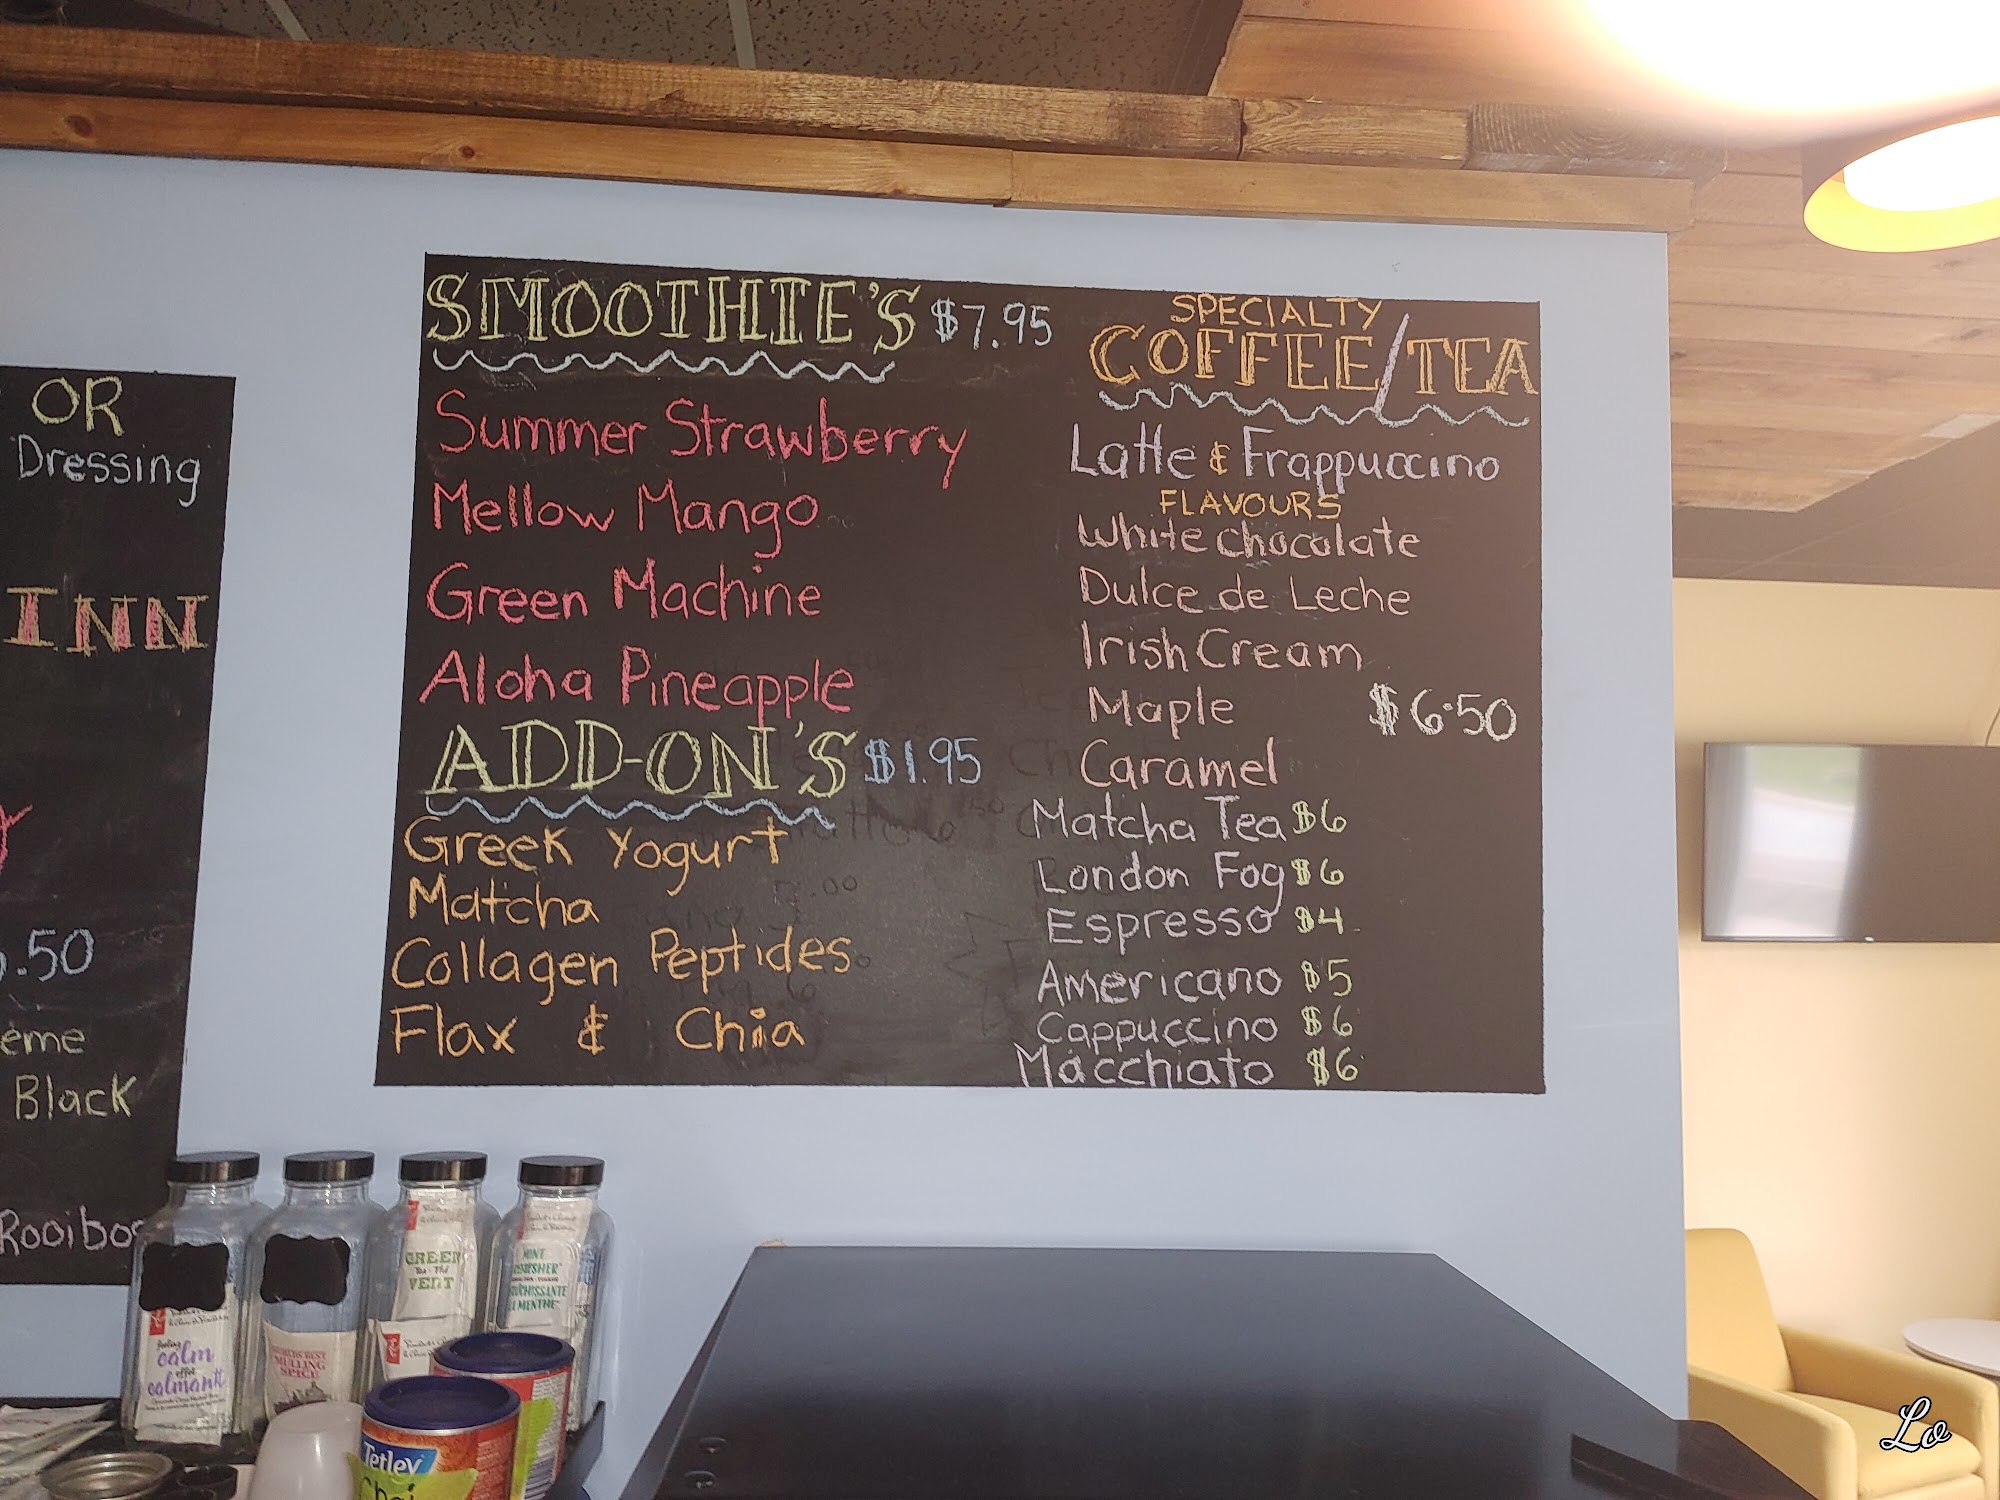 OR
Dressing
INN
.50
ème
Black
Rooibos
SMOOTHIE'S $7.95
Summer Strawberry
Mellow Mango
Green Machine
Aloha Pineapple
ADD-ON'S $1.95
Greek Yogurt
Matcha
Collagen Peptides
Flax & Chia
SPECIALTY
COFFEE/TEA
Latte & Frappuccino
FLAVOURS
White chocolate
Dulce de Leche
Irish Cream
Maple $6.50
Caramel
Matcha Tea $6
London Fog $6
Espresso $4
Americano $5
Cappuccino $6
Macchiato $6
calm
MULLING
SPICE
GREEN
VERT
MINT
Tetley
Chai
Lo